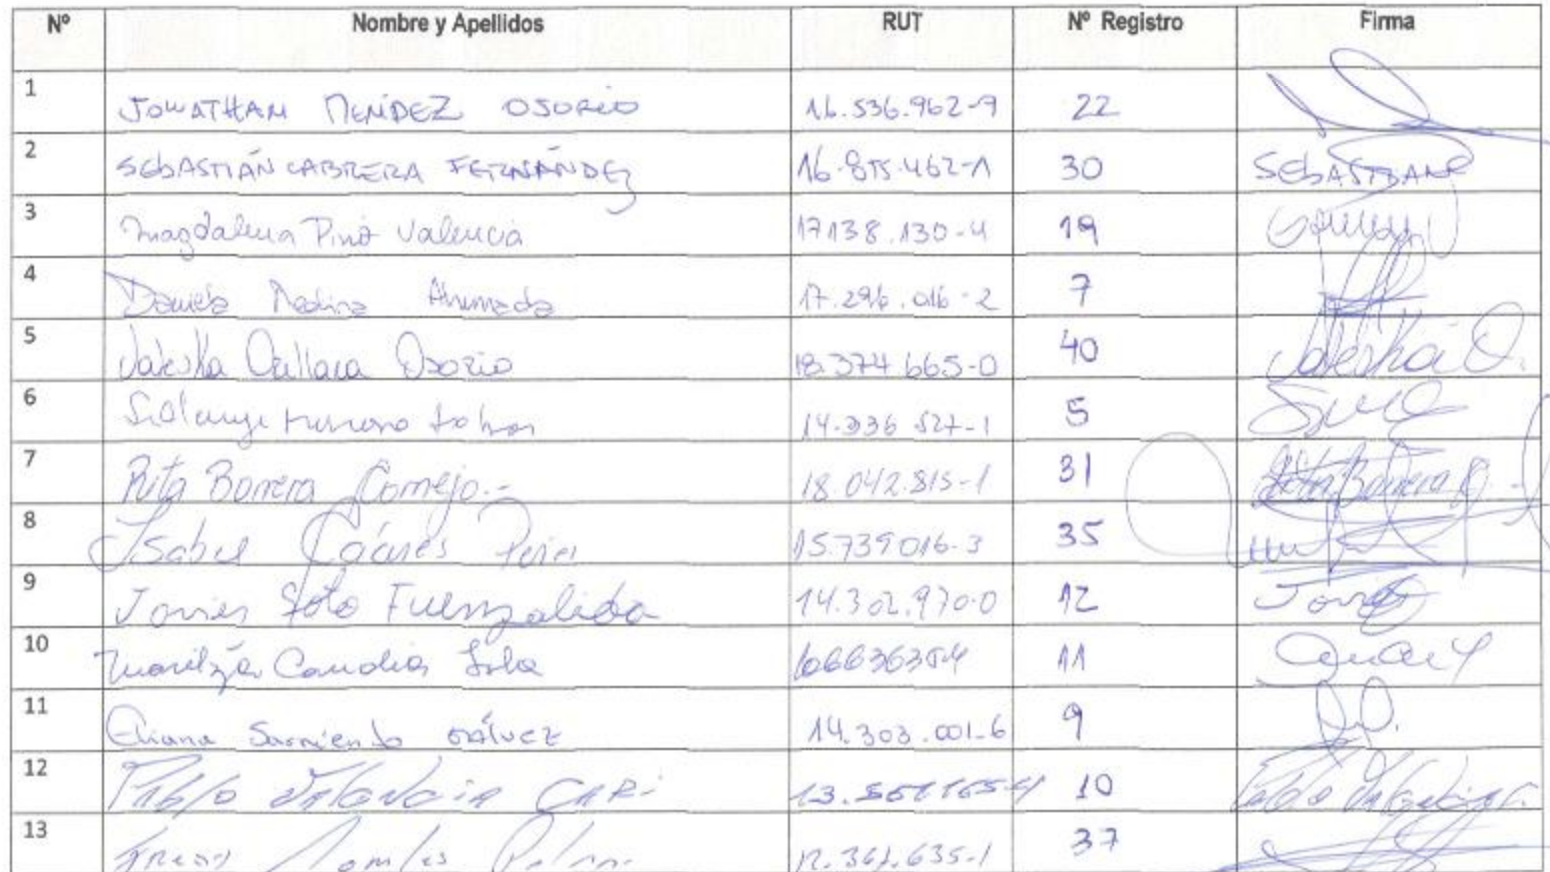 Nº Nombre y Apellidos RUT Nº Registro Firma
1 JONATHAN MENDEZ OSORIO 16.536.962-9 22
2 SEBASTIÁN CABRERA FERNÁNDEZ 16.875.462-1 30 SEBASTIAN
3 Magdalena Pino Valencia 17138.130-4 19
4 Daniela Medina Ahumada 17.296.016-2 7
5 Valeska Orellana Osorio 18.374.665-0 40 Valeska O.
6 Solange Moreno 5
7 Rita Barrera Cornejo.- 18.042.815-1 31 Rita Barrera C.-
8 Isabel Cáceres 15.739016-3 35
9 Javier Soto Fuenzalida 14.302.970-0 12
10 Maritza Candia 11
11 Eliana Sarmiento Gálvez 14.303.001-6 9
12 Pablo Valencia 10
13 12.361.635-1 37